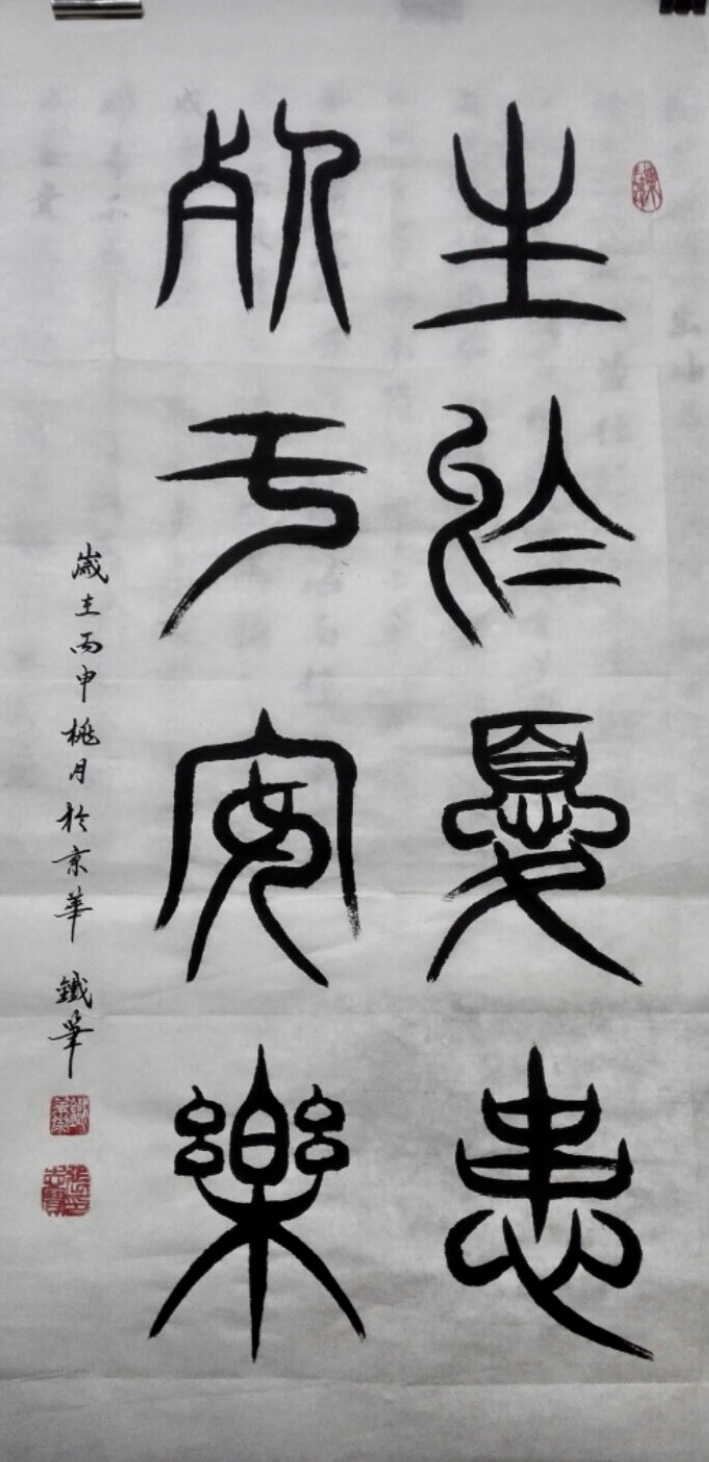 生於憂患
死于安樂
歲在丙申桃月於京華 鐵筆